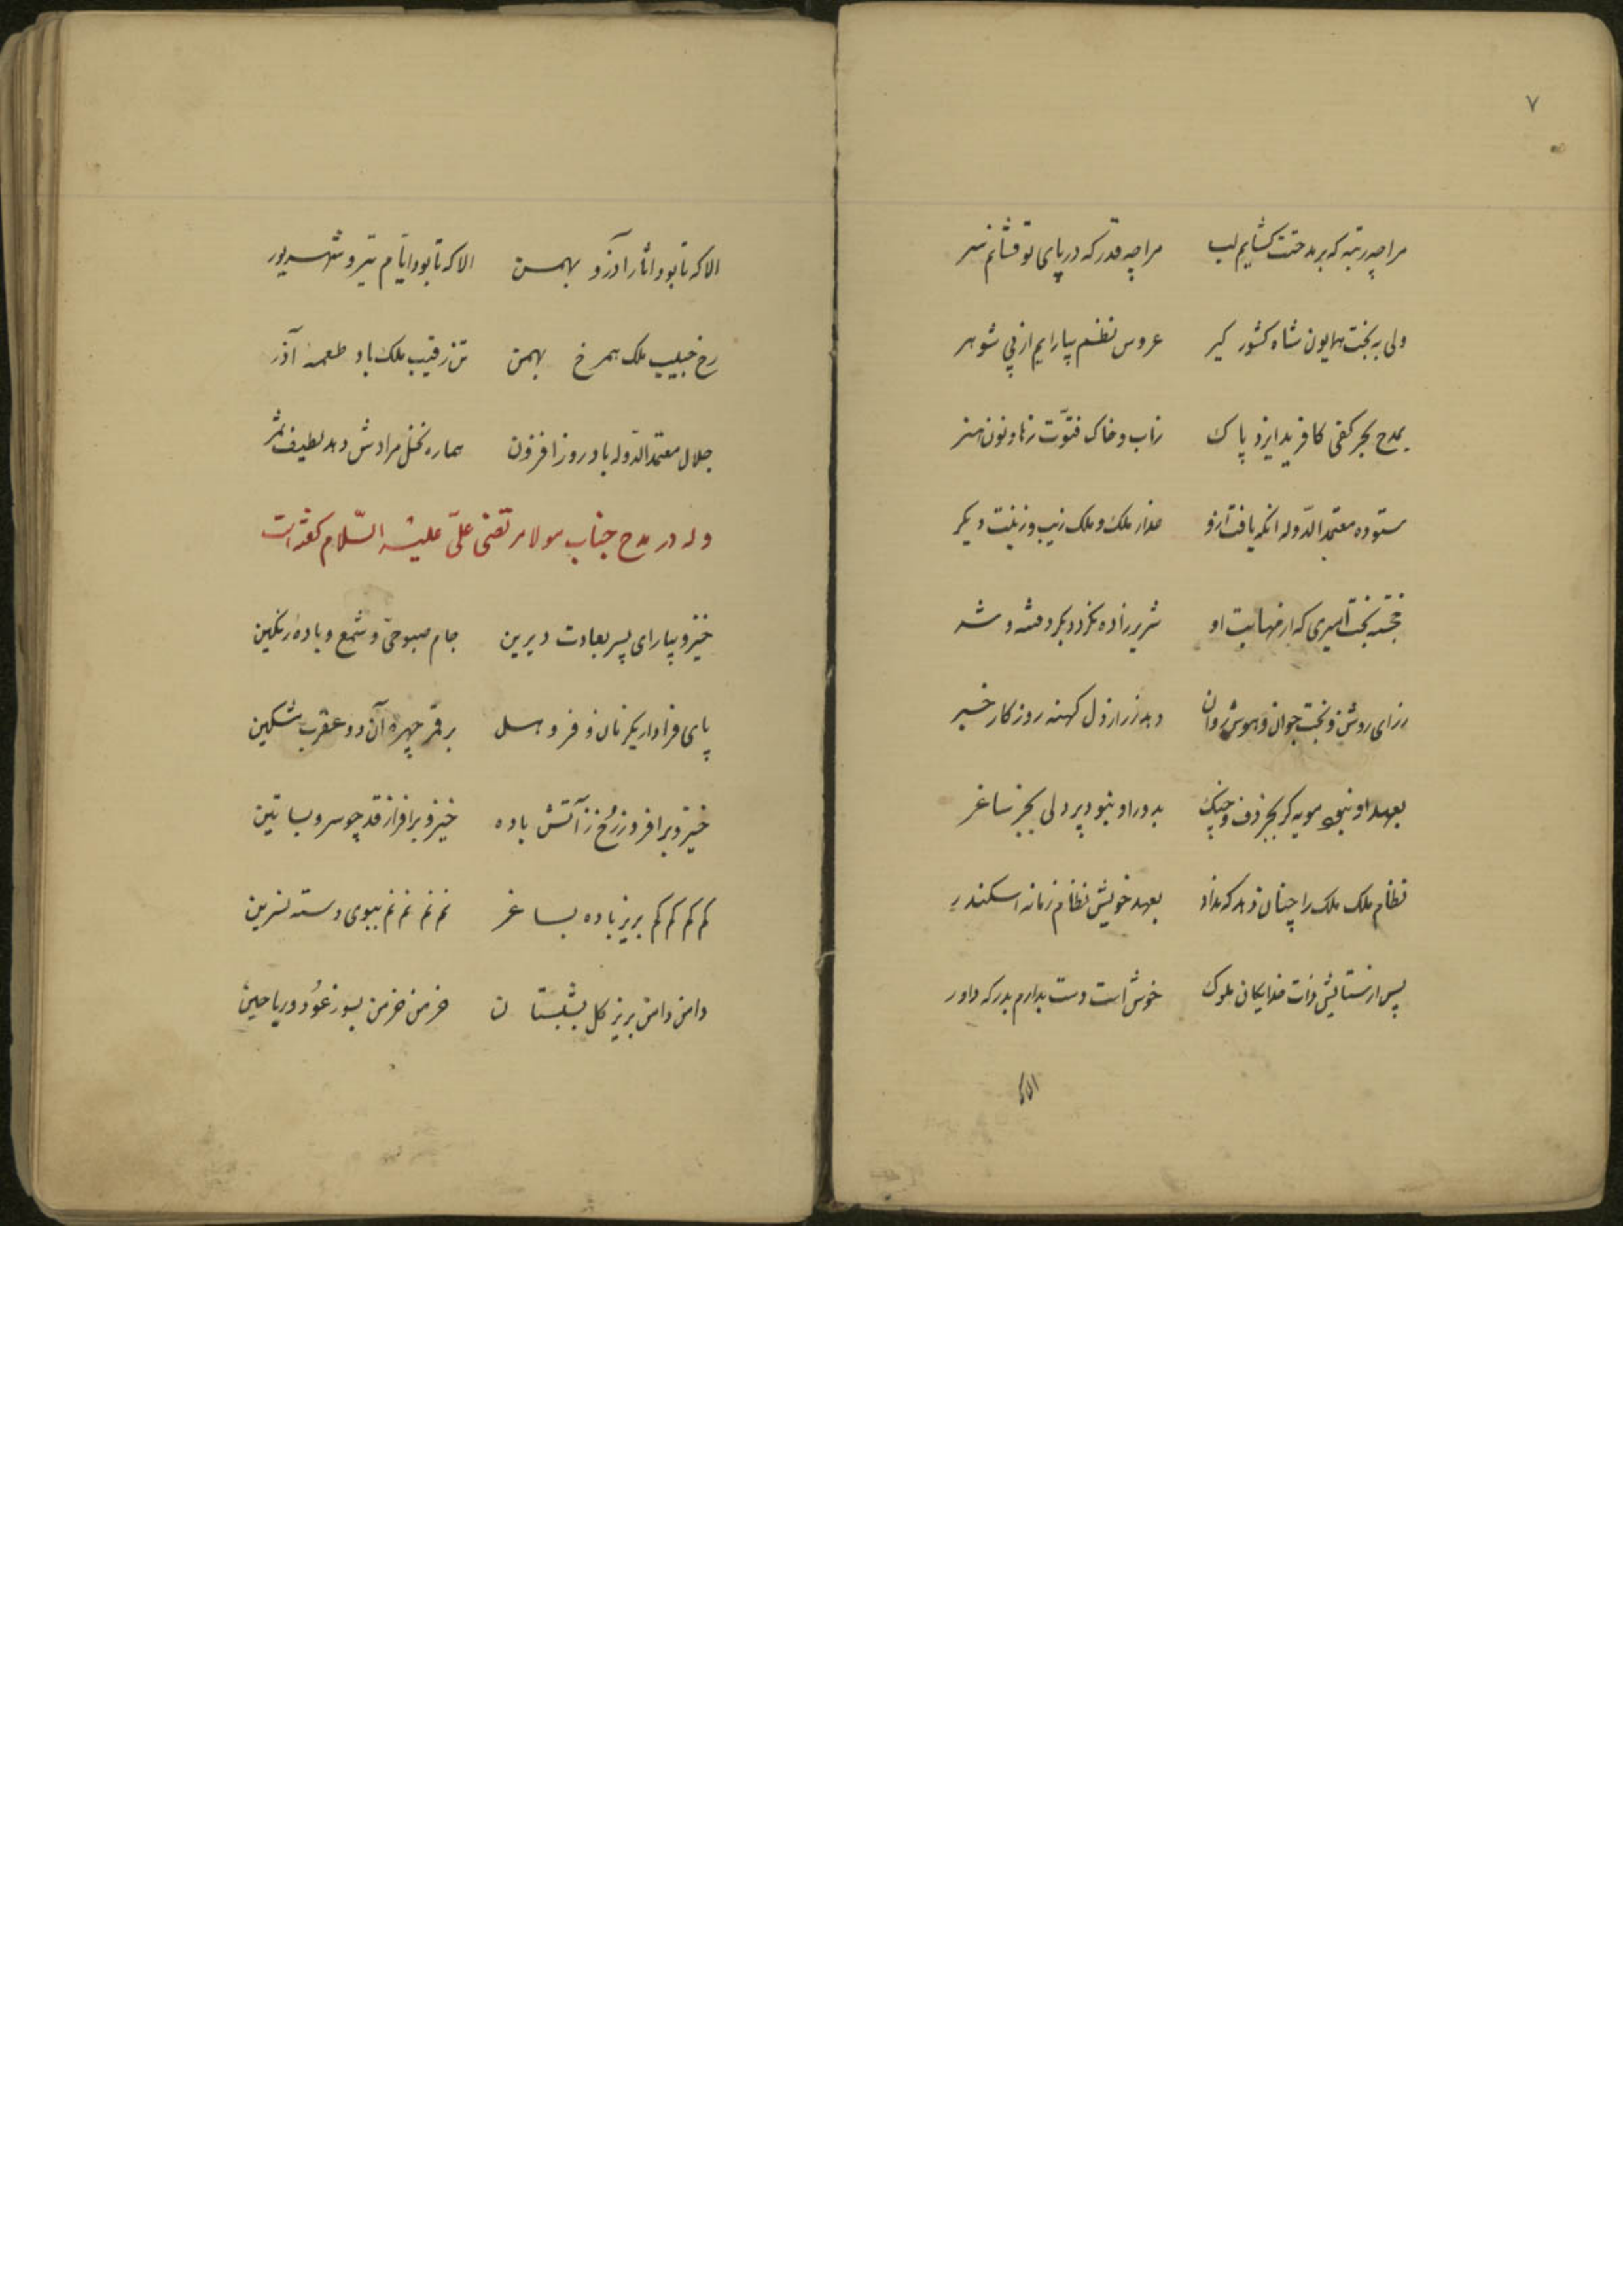 ۷
مرا چه رتبه که بر مدحتت کشایم لب مرا چه قدر که در پای تو فشانم سر
ولی به بخت همایون شاه کشور کیر عروس نظم بیارایم از پی شوهر
بمدح بحر کفی کافرید ایزد پاک زاب و خاک فتوّت
ستوده معتمد الدّوله انکه یافت ازو عذار ملک و ملک زیب و زینت دیکر
خجسته بخت امیری که از مهابت او شرر نزاده نکردد بکرد
ز رای روشن و بخت جوان و هوش روان دهد ز راز دل کهنه روزکار خبر
بعهد او نبود مویه کر بجز دف و چنک بدور او نبود پر دلی بجز ساغر
نظام ملک ملک را چنان دهد که نداد بعهد خویش نظام زمانه اسکندر
پس از ستایش ذات خدایکان ملوک خوش است دست بدارم بدرکه داور
الا که
الا که تا بود اثار آذر و بهمن الا که تا بود ایّام تیر و شهریور
رخ حبیب ملک همرخ بهمن تن رقیب ملک باد طعمهٔ آذر
جلال معتمد الدّوله باد روز افزون هماره نخل مرادش دهد لطیف ثمر
وله در مدح جناب مولا مرتضی علیّ علیه السّلام کفته است
خیز و بیارای پسر بعادت دیرین جام صبوحیّ و شمع و بادهٔ رنکین
پای فرا دار یکزمان و فرو هل بر قمر چهره آن دو عقرب مشکین
خیز و برافروز رُخ ز آتش باده خیز و برافراز قد چو سرو بساتین
کم کم کم کم بریز باده بساغر نم نم نم نم ببوی دسته نسرین
دامن دامن بریز کل بشبستان خرمن خرمن بسوز عوُد و ریاحین